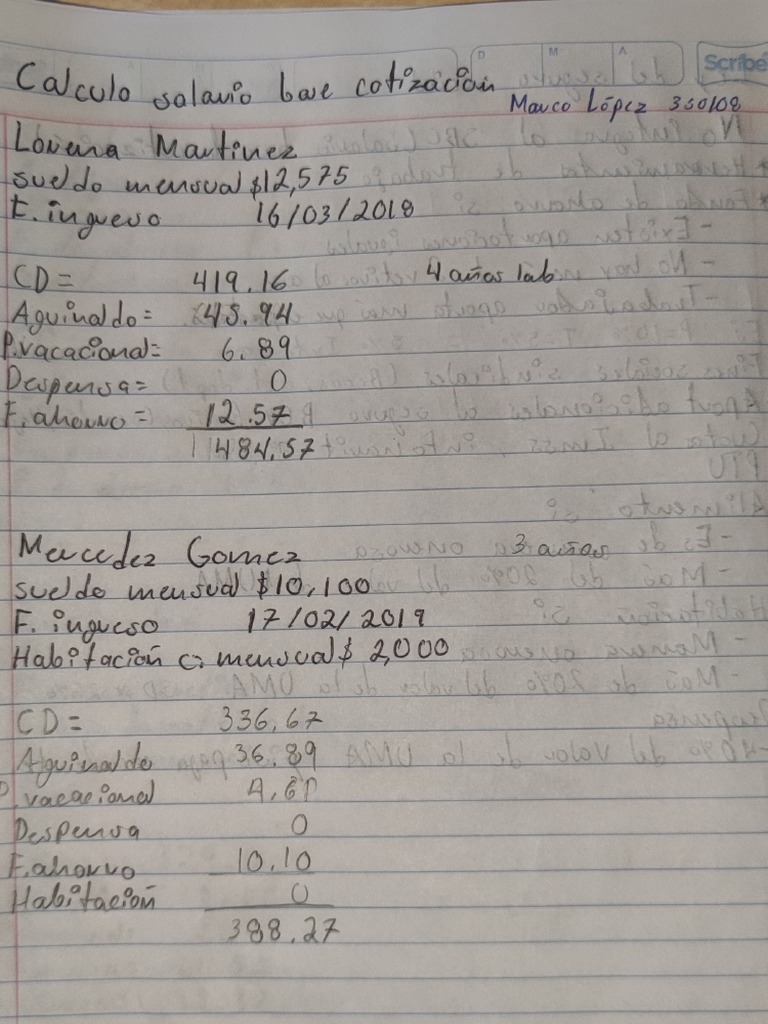 D M A Scribe
Calculo salario base cotización
Marco López 350108
Lorena Martinez
sueldo mensual $12,575
F. ingreso 16/03/2018
CD = 419.16 4 años lab
Aguinaldo = 45.94
P.vacacional = 6.89
Despensa = 0
F. ahorro = 12.57
484.57
Mercedez Gomez 3 años
sueldo mensual $10,100
F. ingreso 17/02/2019
Habitación c: mensual $ 2,000
CD = 336,67
Aguinaldo 36.89
P.vacacional
Despensa 0
F. ahorro 10.10
Habitación 0
388.27